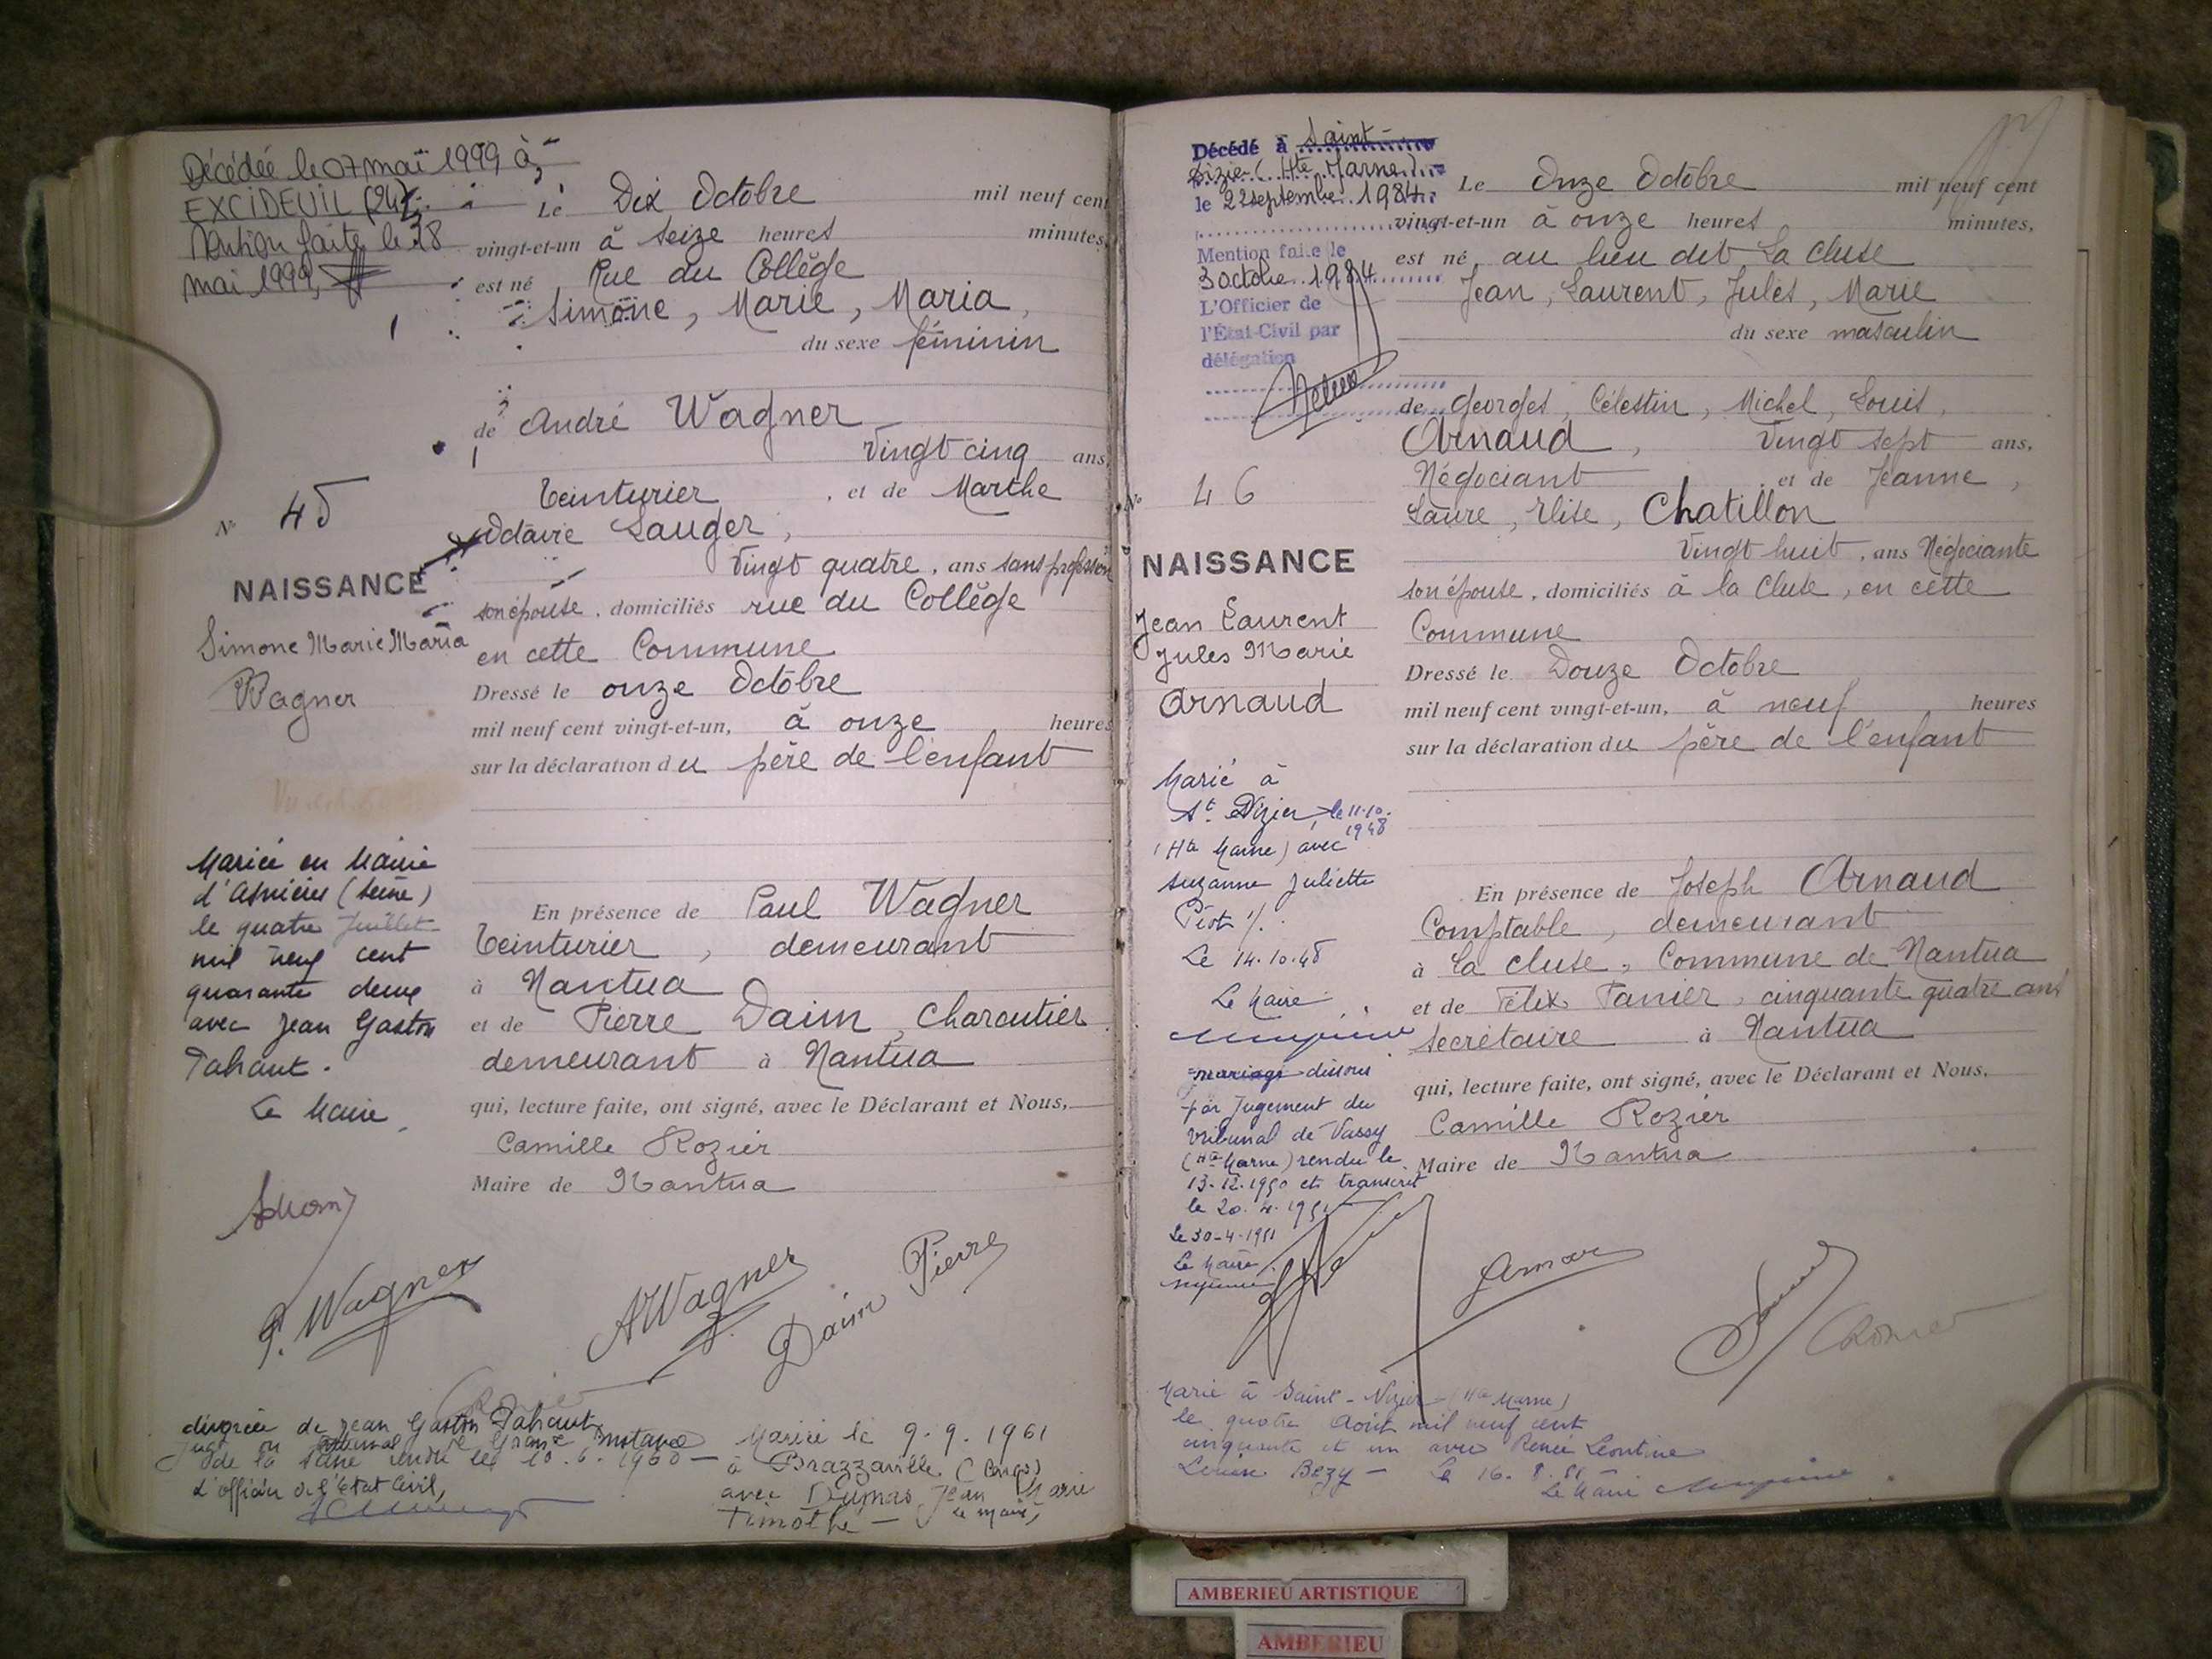 Décédée le 07 mai 1999 à
EXCIDEUIL (24).
Mention faite le 18
mai 1999,
Le Dix Octobre mil neuf cent
vingt-et-un à seize heures minutes,
est né Rue du Collège
Simone, Marie, Maria,
du sexe féminin
de André Wagner
Vingt cinq ans,
teinturier, et de Marthe
Octavie Lauger,
Vingt quatre, ans sans profession
son épouse, domiciliés rue du Collège
en cette Commune
Dressé le onze Octobre
mil neuf cent vingt-et-un, à onze heures
sur la déclaration du père de l'enfant
En présence de Paul Wagner
teinturier, demeurant
à Nantua
et de Pierre Daim, Charcutier
demeurant à Nantua
qui, lecture faite, ont signé, avec le Déclarant et Nous,
Camille Rozier
Maire de Nantua
N° 45
NAISSANCE
Simone Marie Maria
Wagner
Mariée en Mairie
d'Asnières (Seine)
le quatre Juillet
mil neuf cent
quarante deux
avec Jean Gaston
Pahaut.
Le Maire,
P. Wagner
AWagner
Daim Pierre
divorcée de Jean Gaston Pahaut
Jugt du Tribunal de Grande Instance
de la Seine rendu le 10.6.1960 -
L'officier de l'Etat Civil,
Mariée le 9.9.1961
à Brazzaville (Congo)
avec Dumas, Jean Marie
Timothé -
le maire,
Décédé à Saint-
Dizier (Hte Marne)
le 22 septembre 1984
Mention faite le
3 octobre 1984
L'Officier de
l'État-Civil par
délégation
Le Onze Octobre mil neuf cent
vingt-et-un à onze heures minutes,
est né au lieu dit La Cluse
Jean, Laurent, Jules, Marie
du sexe masculin
de Georges, Célestin, Michel, Louis,
Arnaud, Vingt sept ans,
Négociant et de Jeanne,
Laure, Elise, Chatillon
Vingt huit, ans Négociante
son épouse, domiciliés à la Cluse, en cette
Commune
Dressé le Douze Octobre
mil neuf cent vingt-et-un, à neuf heures
sur la déclaration du père de l'enfant
En présence de Joseph Arnaud
Comptable, demeurant
à La Cluse, Commune de Nantua
et de Félix Tanier, cinquante quatre ans
Secrétaire à Nantua
qui, lecture faite, ont signé, avec le Déclarant et Nous,
Camille Rozier
Maire de Nantua
N° 46
NAISSANCE
Jean Laurent
Jules Marie
Arnaud
Marié à
St Dizier, le 11-10-
1948
(Hte Marne) avec
Suzanne Juliette
Piot
Le 14.10.48
Le Maire
mariage dissous
par Jugement du
tribunal de Vassy
(Hte Marne) rendu le
13-12-1950 et transcrit
le 20.4.1951
Le 30-4-1951
Le Maire
Marié à Saint-Dizier (Hte Marne)
le quatre Août mil neuf cent
cinquante et un avec Renée Léontine
Louise Bezy - Le 16.8.51
Le Maire
AMBERIEU ARTISTIQUE
AMBERIEU